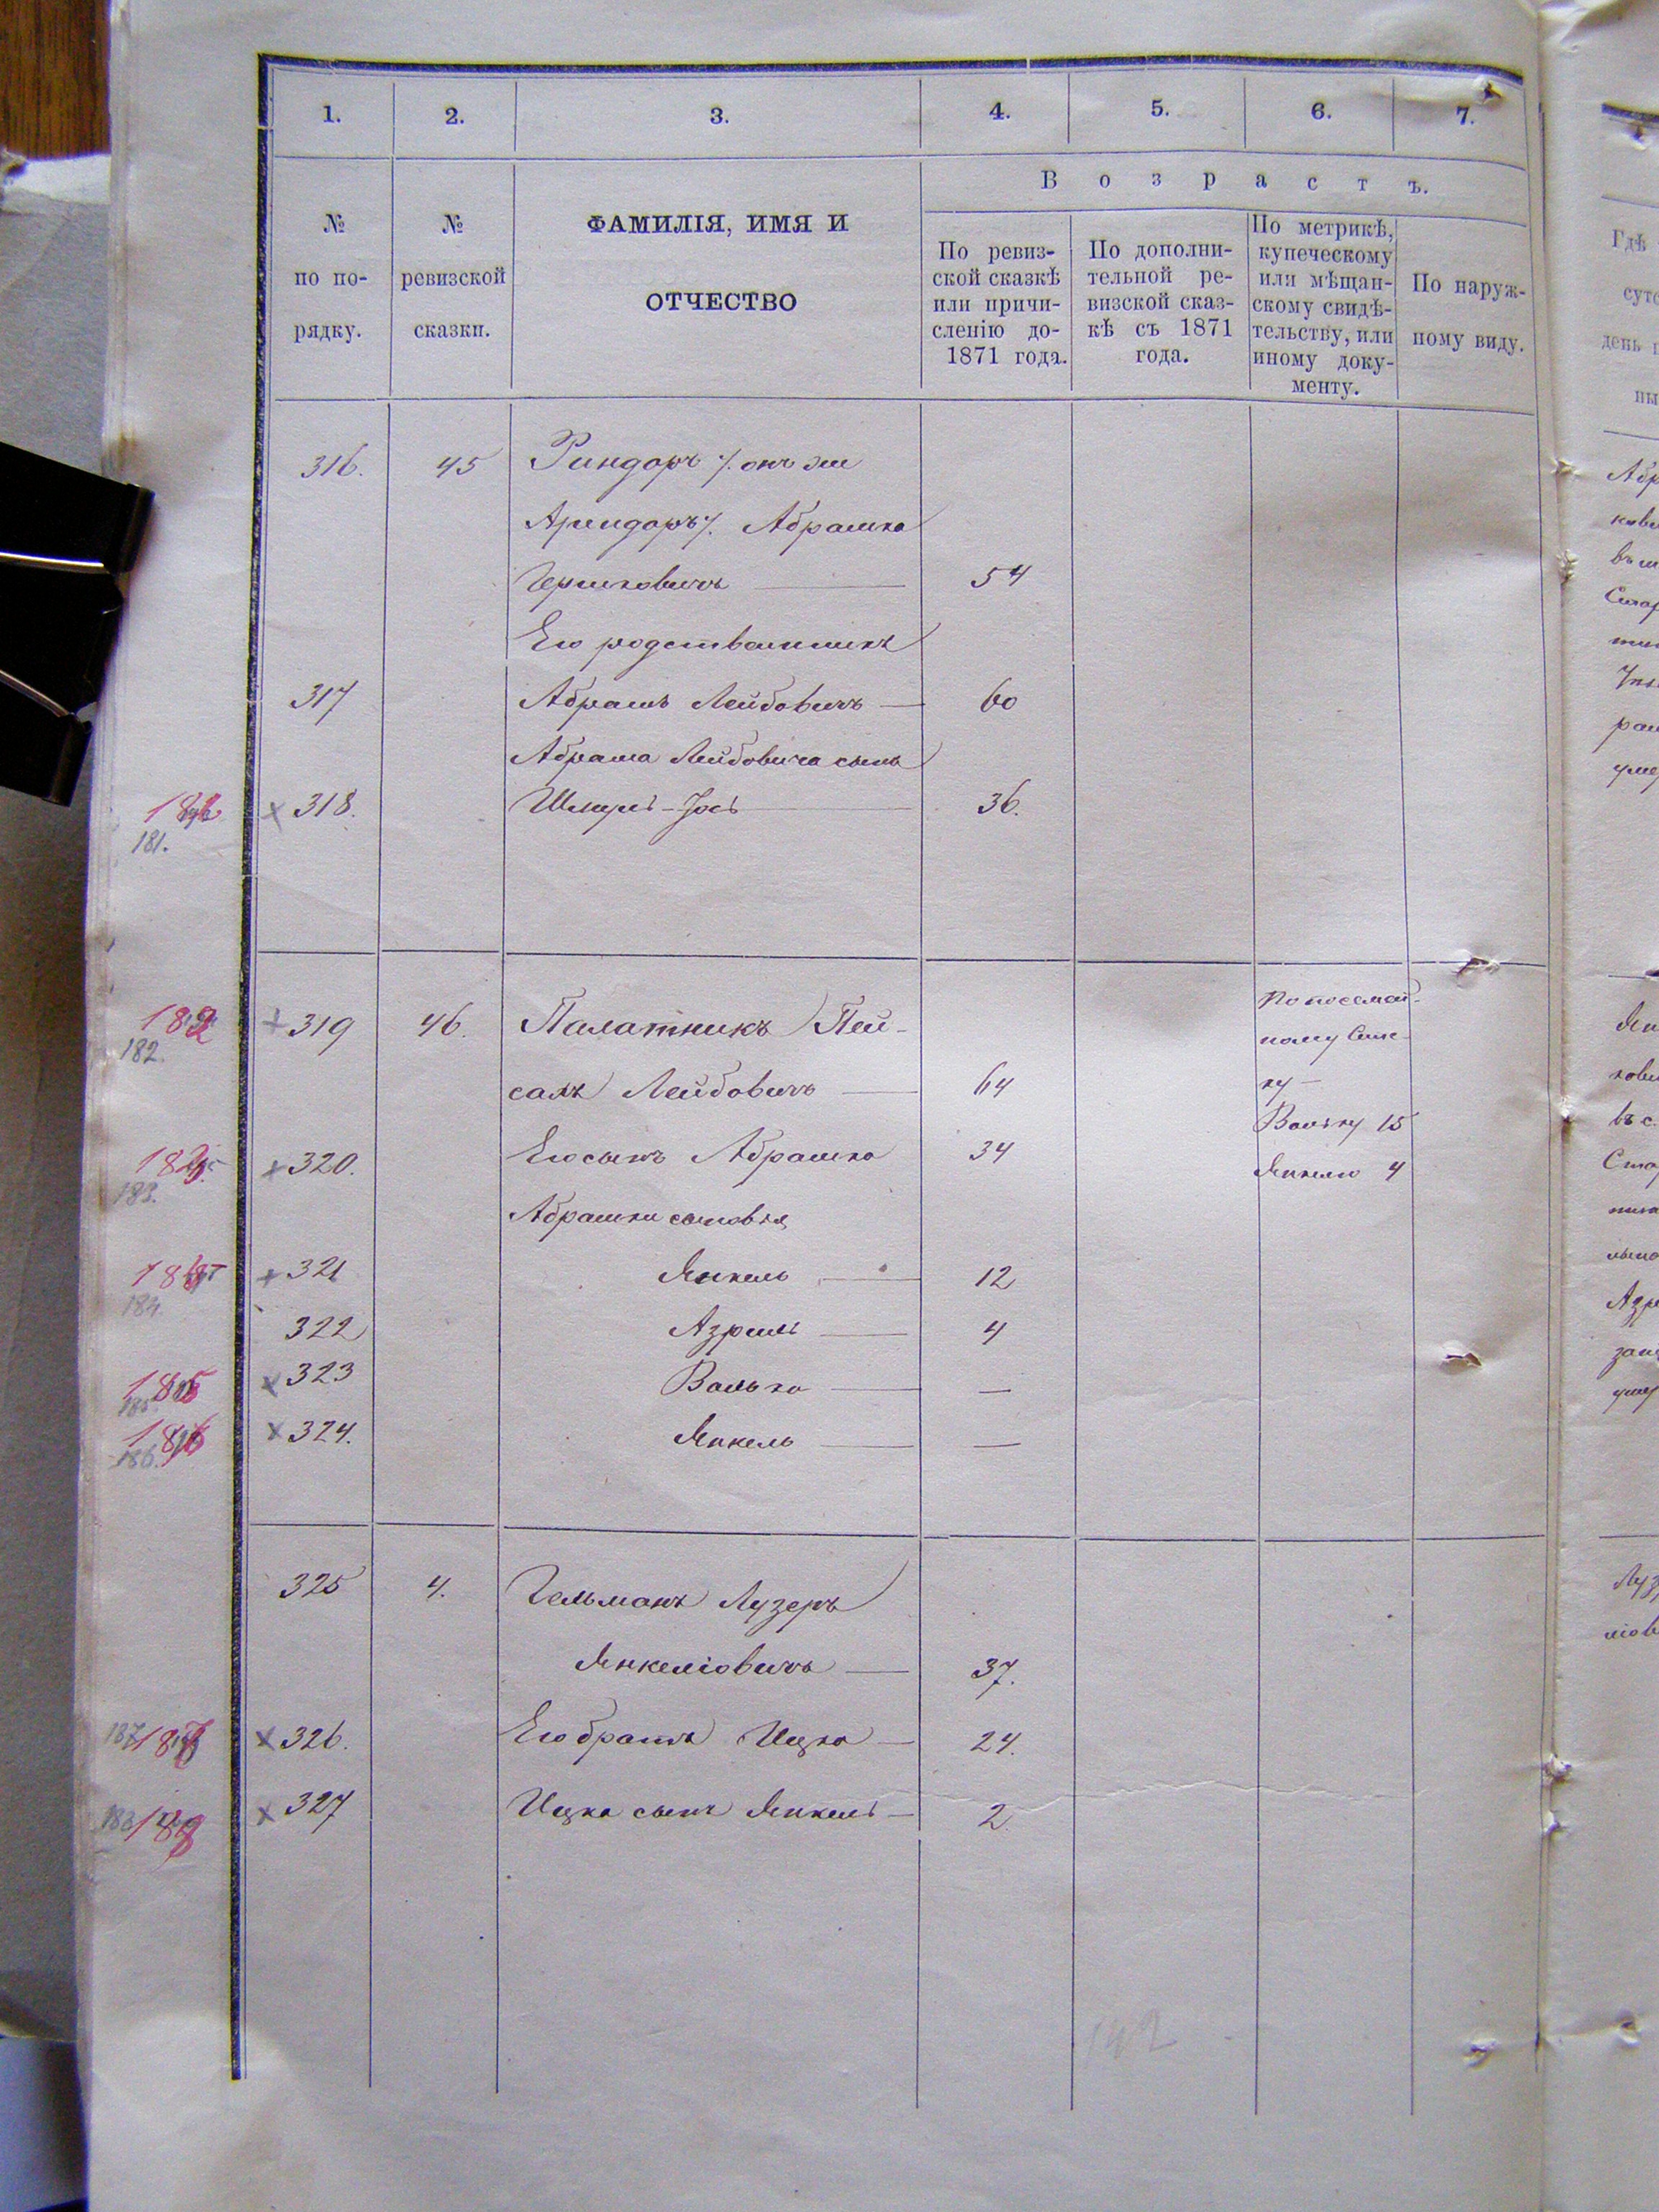 1. 2. 3. 4. 5. 6. 7.
В о з р а с т ъ.
№ по по-рядку.
№ ревизской сказки.
ФАМИЛІЯ, ИМЯ И
ОТЧЕСТВО
По ревиз-
ской сказкѣ
или причи-
сленію до-
1871 года.
По дополни-
тельной ре-
визской сказ-
кѣ съ 1871
года.
По метрикѣ,
купеческому
или мѣщан-
скому свидѣ-
тельству, или
иному доку-
менту.
По наруж-
ному виду.
316. 45 Риндоръ /. онъ же
Арендоръ /. Абрашко
Гершковичъ — 54
Его родственникъ
317 Абрамъ Лейбовичъ — 60
Абрама Лейбовича сынъ
181. 318. Шмуль-Іось 36.
182 182. 319 46. Палатникъ Пей-
салъ Лейбовичъ — 64
По посемей-
ному спис-
ку —
Вольку 15
Янкелю 4
183. 320. Его сынъ Абрашко 34
Абрашки сыновья
184. 321 Янкель — 12
322 Азріиль — 4
185 185. 323 Волько — —
186 186. 324. Янкель — —
325 4. Гельманъ Лузеръ
Янкеліовичъ — 37.
187 187 326. Его братъ Ицко — 24.
188 188 327 Ицка сынъ Янкель — 2
142
Гдѣ